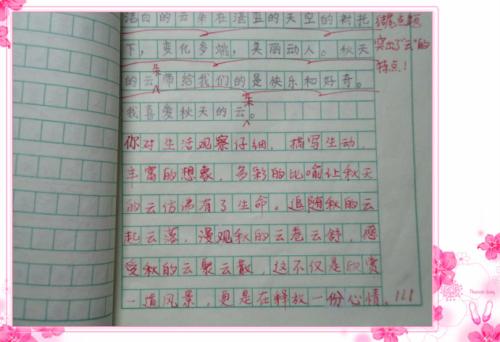 洁白的云朵在湛蓝的天空的衬托
下，变化多端，美丽动人。秋天
的云朵带给我们的是快乐和好奇。
我喜爱秋天的云朵。
结尾点题
突出了“云”的
特点！
你对生活观察仔细，描写生动，
丰富的想象，多彩的比喻让秋天
的云仿佛有了生命。追随秋的云
起云落，漫观秋的云卷云舒，感
受秋的云聚云散，这不仅是欣赏
一道风景，更是在释放一份心情。